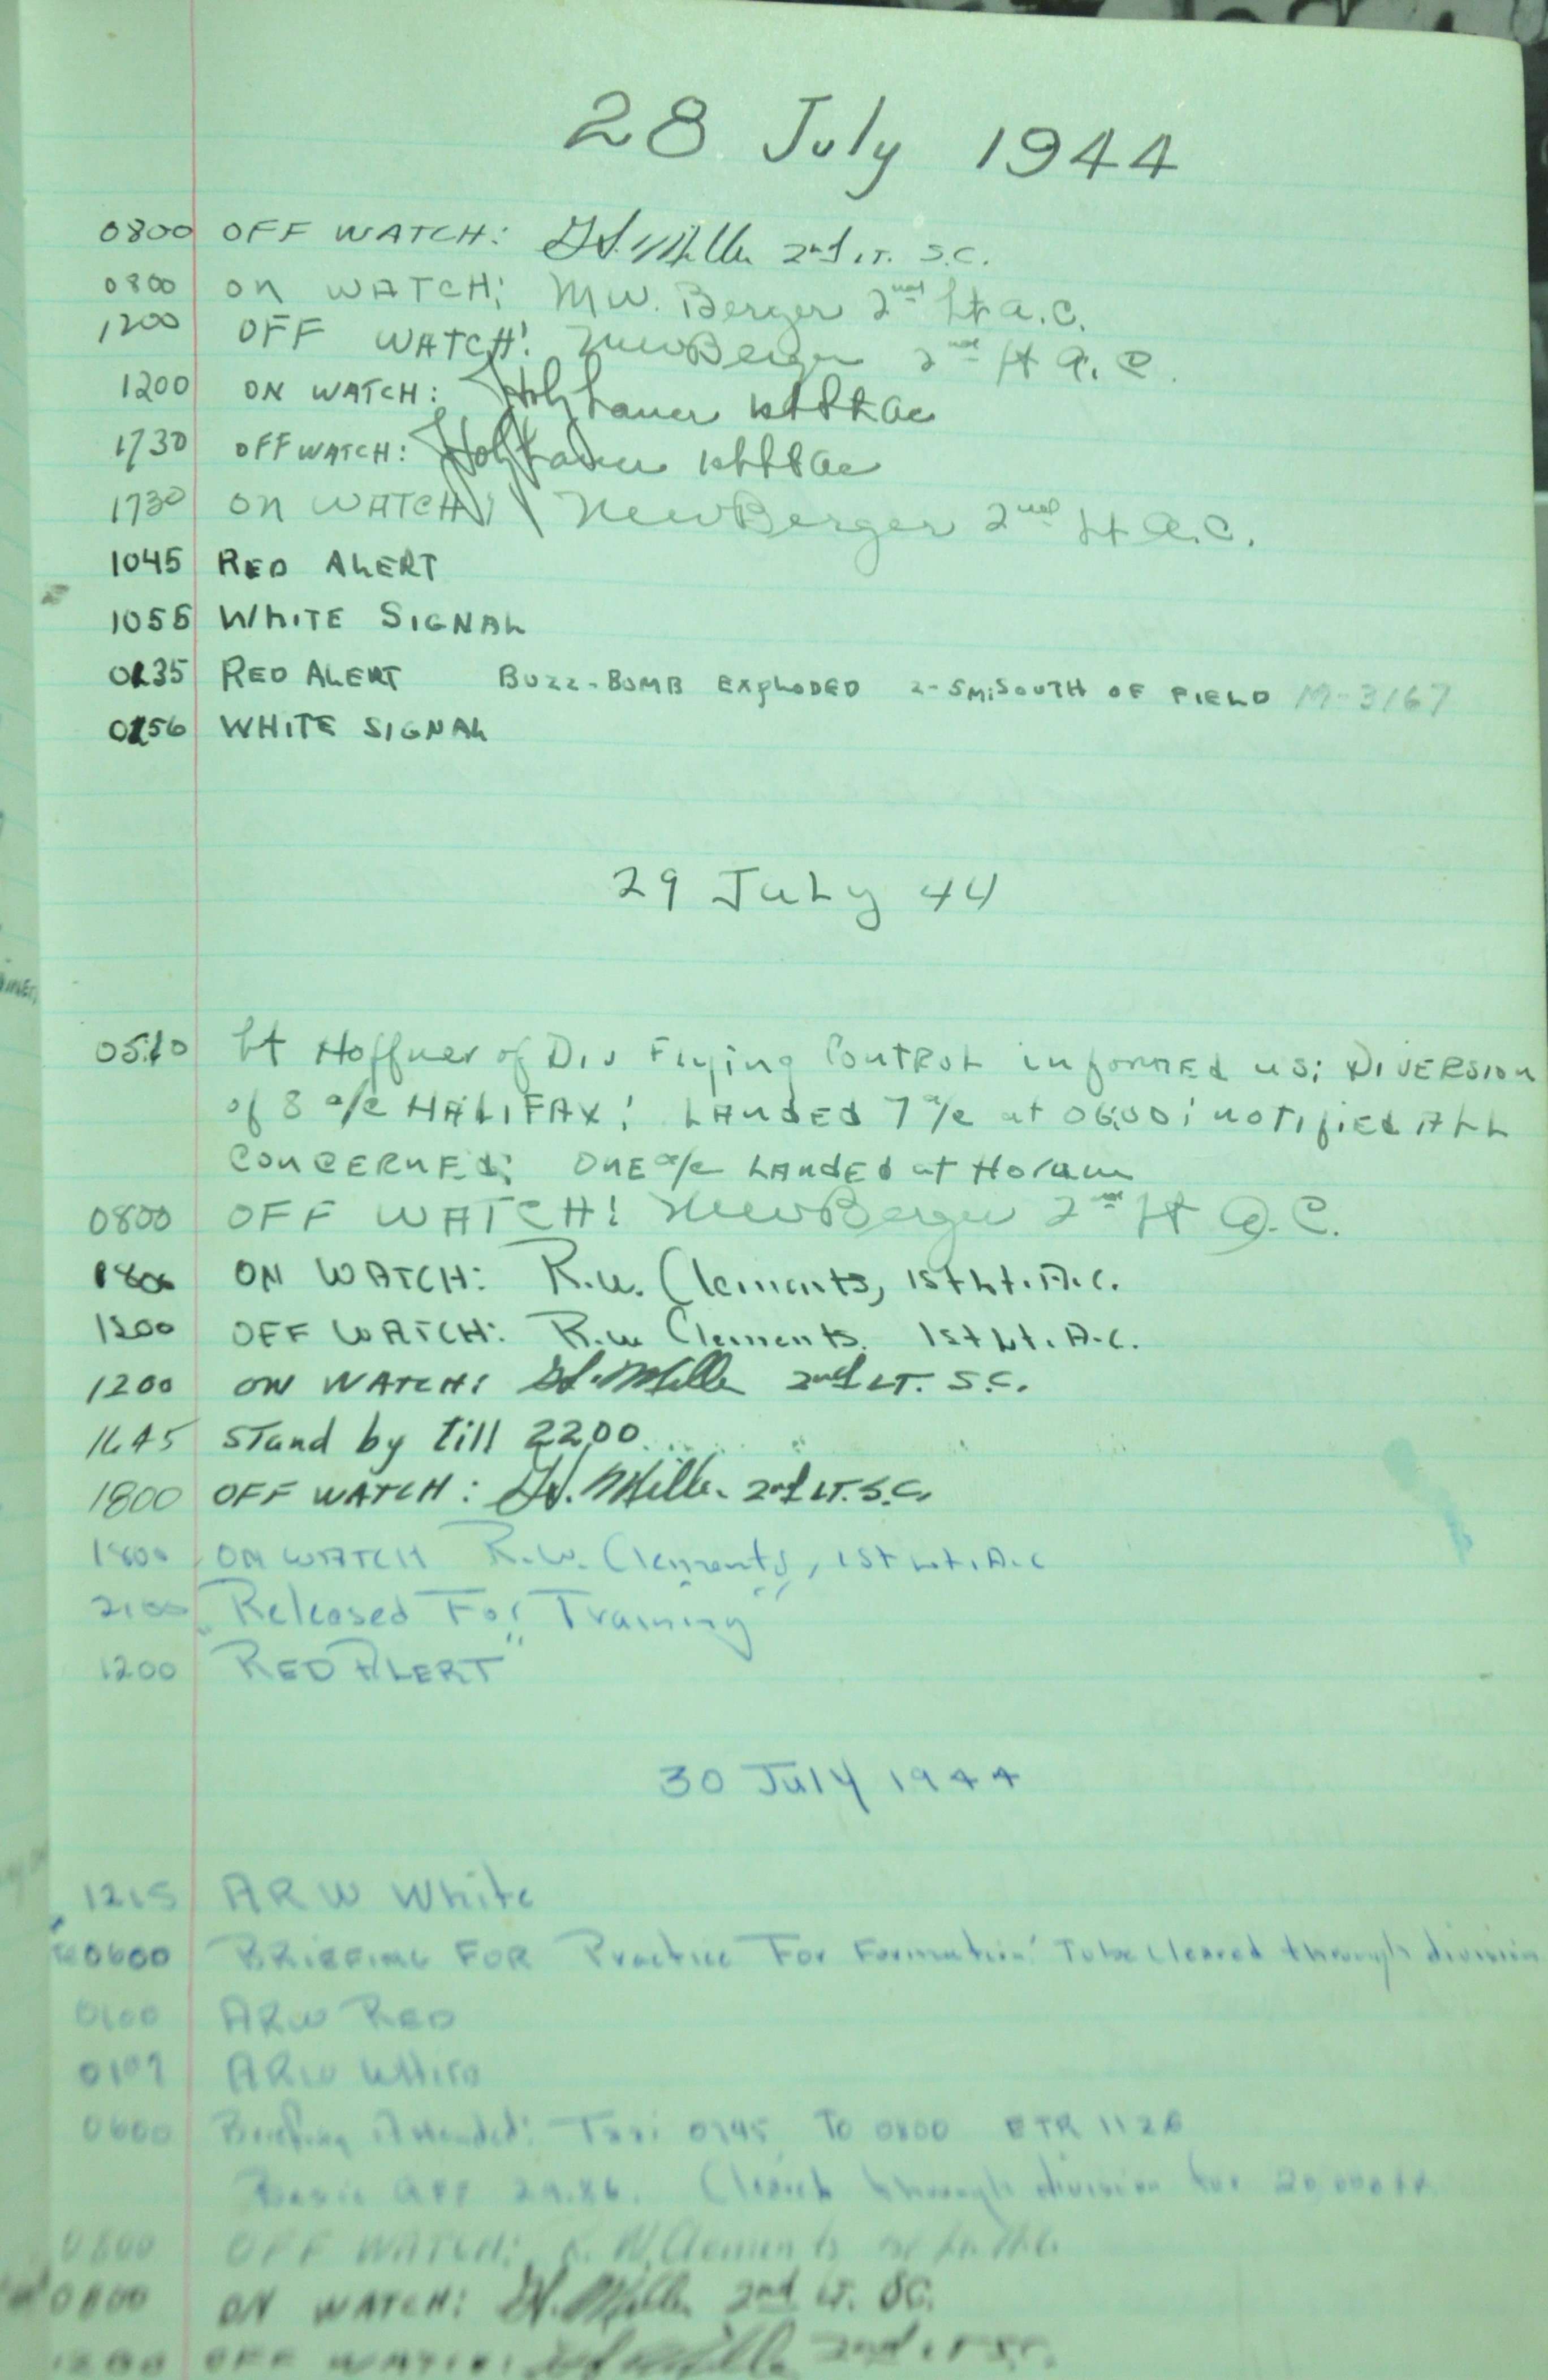 28 July 1944
0800 OFF WATCH: Miller 2nd LT. S.C.
0800 ON WATCH: M.W. Berger 2nd Lt A.C.
1200 OFF WATCH: MWBerger 2nd Lt A.C.
1200 ON WATCH: Holzhauer 1st Lt AC
1730 OFF WATCH: Holzhauer 1st Lt AC
1730 ON WATCH: MWBerger 2nd Lt A.C.
1045 RED ALERT
1055 WHITE SIGNAL
RED ALERT BUZZ-BOMB EXPLODED 2-5 Mi SOUTH OF FIELD M-3167
WHITE SIGNAL
29 July 44
0510 Lt Hoffner of Div Flying CONTROL informed us; DIVERSION
of 8 a/c HALIFAX! LANDED 7 a/c at 0600; NOTIFIED ALL
CONCERNED: ONE a/c LANDED at Horam
0800 OFF WATCH! MWBerger 2nd Lt A.C.
ON WATCH: R.W. Clements, 1st Lt. A.C.
1200 OFF WATCH: R.W Clements. 1st Lt. A.C.
1200 ON WATCH: Miller 2nd LT. S.C.
1645 Stand by till 2200
1800 OFF WATCH: Miller 2nd LT. S.C.
1800 ON WATCH R.W. Clements, 1st Lt. A.C
2100 "Released For Training"
1200 RED ALERT"
30 July 1944
1215 ARW White
0600 BRIEFING FOR Practice For Formation! To be Cleared through division
0100 ARW RED
0107 ARW White
0600 Briefing Attended: Taxi 0745 TO 0800 ETR 1126
29.86. through division for 20,000 ft.
0800 OFF WATCH: R.W. Clements
0800 ON WATCH: Miller 2nd LT. SC.
OFF WATCH: Miller 2nd LT S.C.